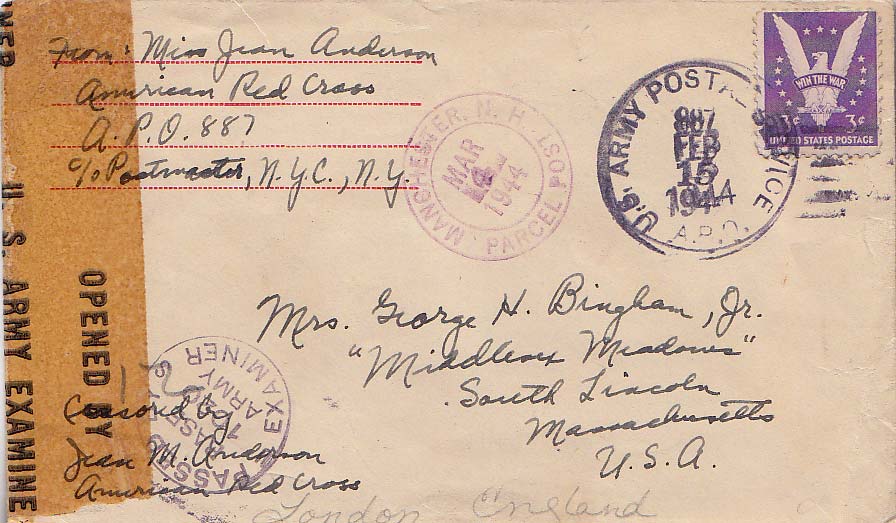 From: Miss Jean Anderson
American Red Cross
A.P.O. 887
c/o Postmaster, N.Y.C., N.Y.
MANCHESTER, N. H.
MAR
1944
PARCEL POST
U.S. ARMY POSTAL SERVICE
887
FEB
15
1944
A.P.O.
WIN THE WAR
3¢ 3¢
UNITED STATES POSTAGE
Mrs. George H. Bingham, Jr.
"Middlesex Meadows"
South Lincoln
Massachusetts
U.S.A.
OPENED BY
U. S. ARMY EXAMINE
NER
PASSED
BASE
ARMY
EXAMINER
Censored by
Jean M. Anderson
American Red Cross
London England